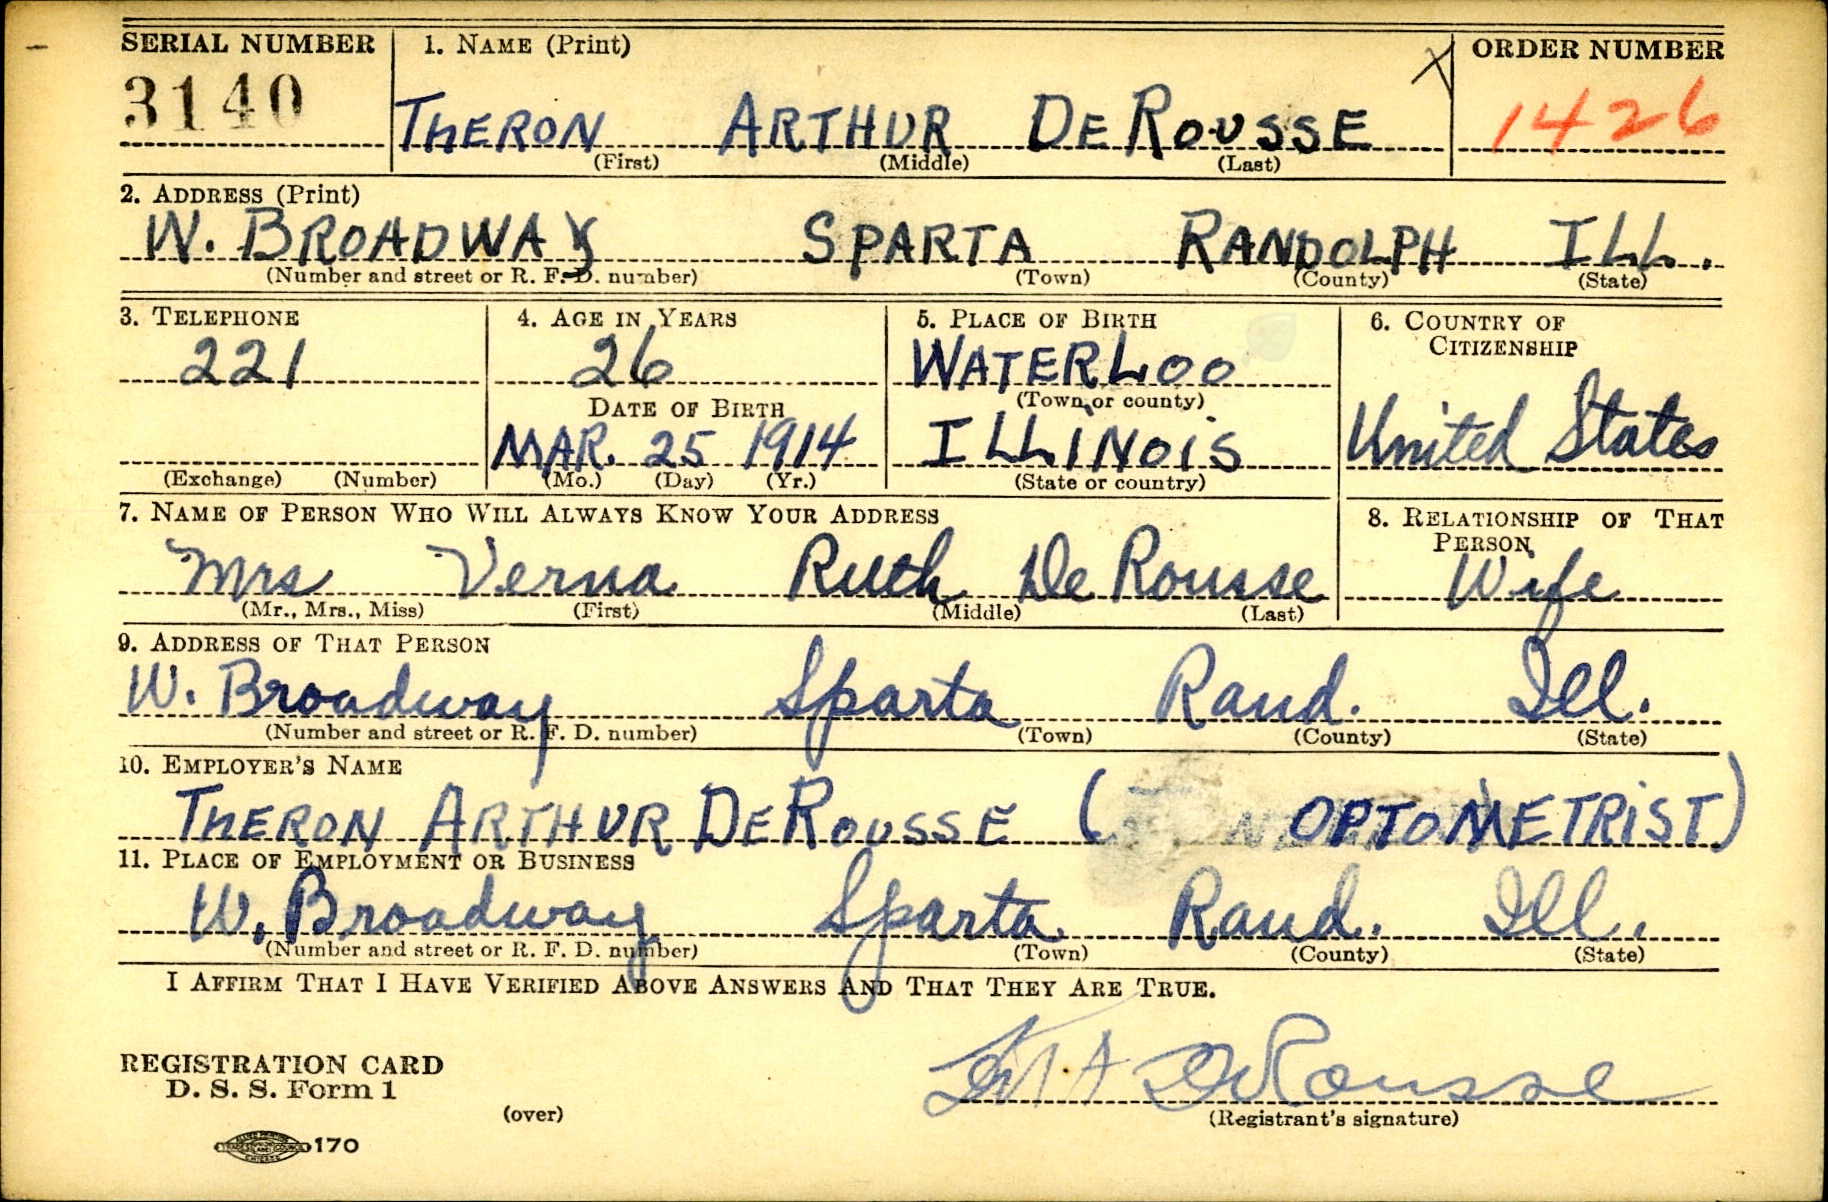 SERIAL NUMBER 1. NAME (Print) ORDER NUMBER
3140 THERON ARTHUR DE ROUSSE X 1426
(First) (Middle) (Last)
2. ADDRESS (Print)
W. BROADWAY SPARTA RANDOLPH ILL.
(Number and street or R. F. D. number) (Town) (County) (State)
3. TELEPHONE 4. AGE IN YEARS 5. PLACE OF BIRTH 6. COUNTRY OF
CITIZENSHIP
221 26 WATERLOO
DATE OF BIRTH (Town or county)
MAR. 25 1914 ILLINOIS United States
(Exchange) (Number) (Mo.) (Day) (Yr.) (State or country)
7. NAME OF PERSON WHO WILL ALWAYS KNOW YOUR ADDRESS 8. RELATIONSHIP OF THAT
PERSON
Mrs Verna Ruth De Rousse Wife
(Mr., Mrs., Miss) (First) (Middle) (Last)
9. ADDRESS OF THAT PERSON
W. Broadway Sparta Rand. Ill.
(Number and street or R. F. D. number) (Town) (County) (State)
10. EMPLOYER'S NAME
THERON ARTHUR DEROUSSE ( OPTOMETRIST)
11. PLACE OF EMPLOYMENT OR BUSINESS
W. Broadway Sparta Rand. Ill.
(Number and street or R. F. D. number) (Town) (County) (State)
I AFFIRM THAT I HAVE VERIFIED ABOVE ANSWERS AND THAT THEY ARE TRUE.
A DeRousse
REGISTRATION CARD
D. S. S. Form 1
(over) (Registrant's signature)
170